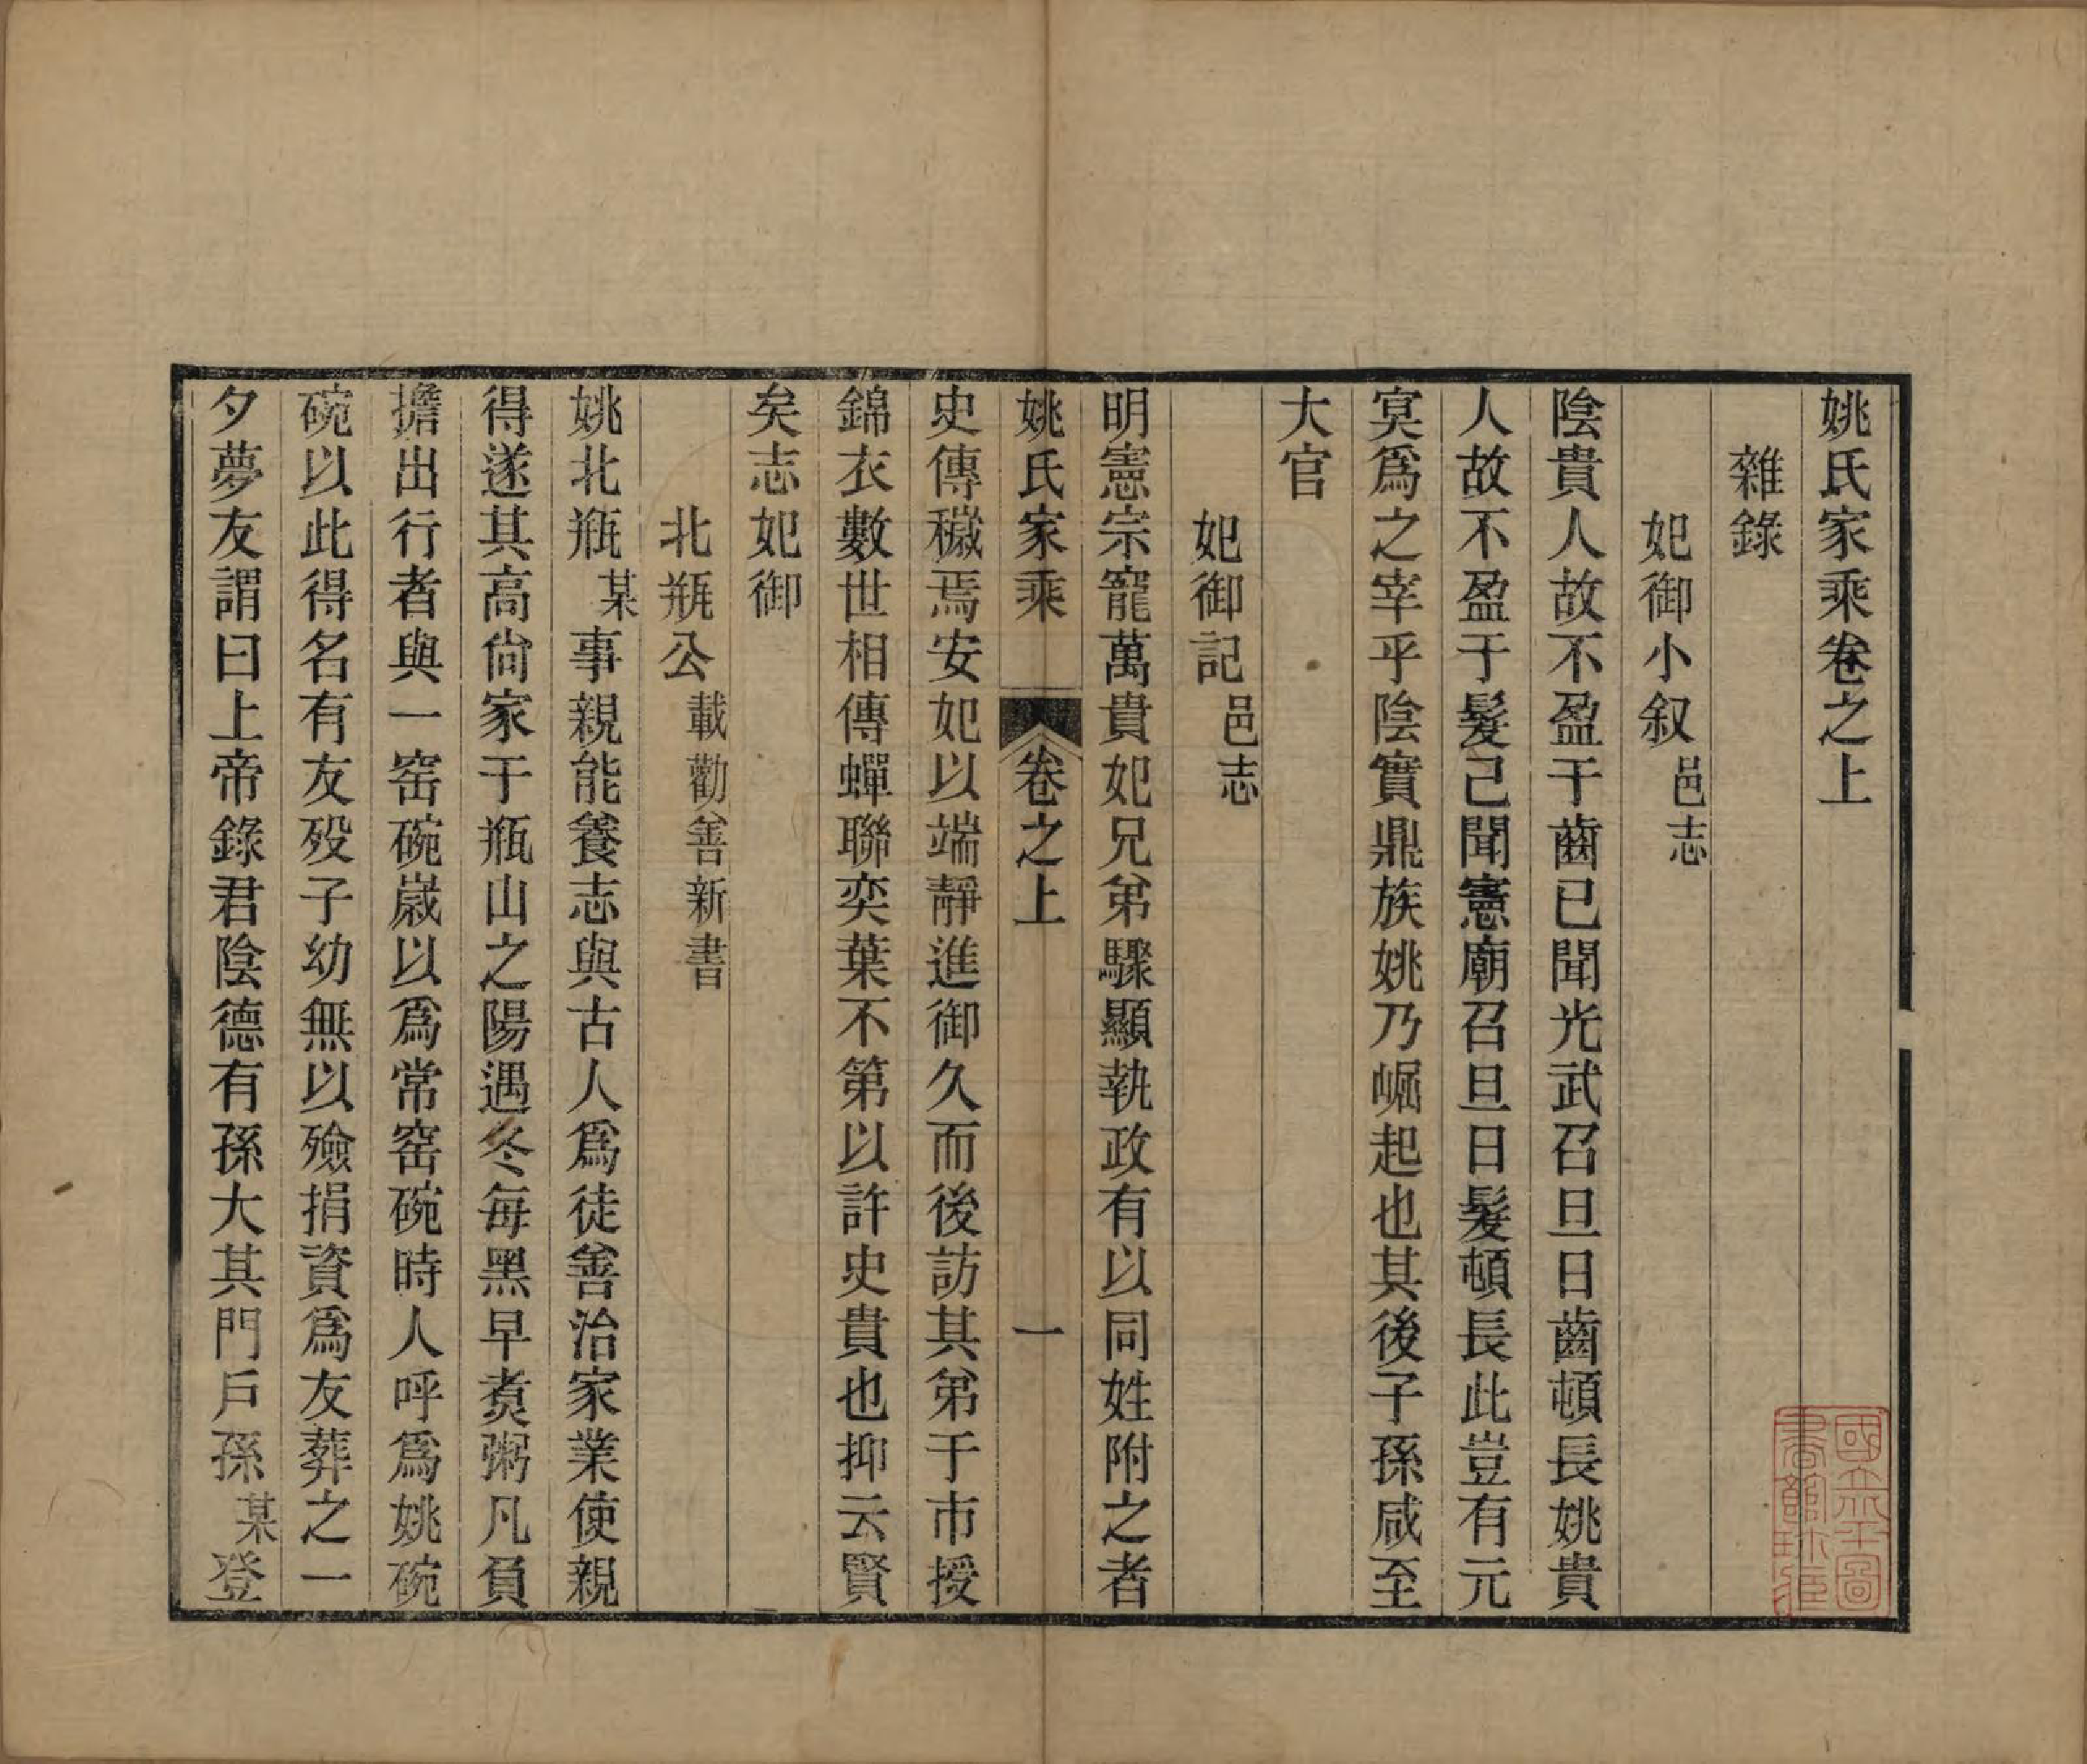 姚氏家乘卷之上
雜錄
妃御小叙邑志
陰貴人故不盈于齒已聞光武召旦日齒頓長姚貴
人故不盈于髮己聞憲廟召旦日髮頓長此豈有元
冥爲之宰乎陰實鼎族姚乃崛起也其後子孫咸至
大官
妃御記邑志
明憲宗寵萬貴妃兄弟驟顯執政有以同姓附之者
姚氏家乘 卷之上 一
史傳穢焉安妃以端靜進御久而後訪其弟于市授
錦衣數世相傳蟬聯奕葉不第以許史貴也抑云賢
矣志妃御
北瓶公載勸善新書
姚北瓶某事親能養志與古人爲徒善治家業使親
得遂其高尙家于瓶山之陽遇冬每黑早煑粥凡負
擔出行者與一窑碗嵗以爲常窑碗時人呼爲姚碗
碗以此得名有友殁子幼無以殮捐資爲友葬之一
夕夢友謂曰上帝錄君陰德有孫大其門戶孫某登
國立北平圖
書館珍藏